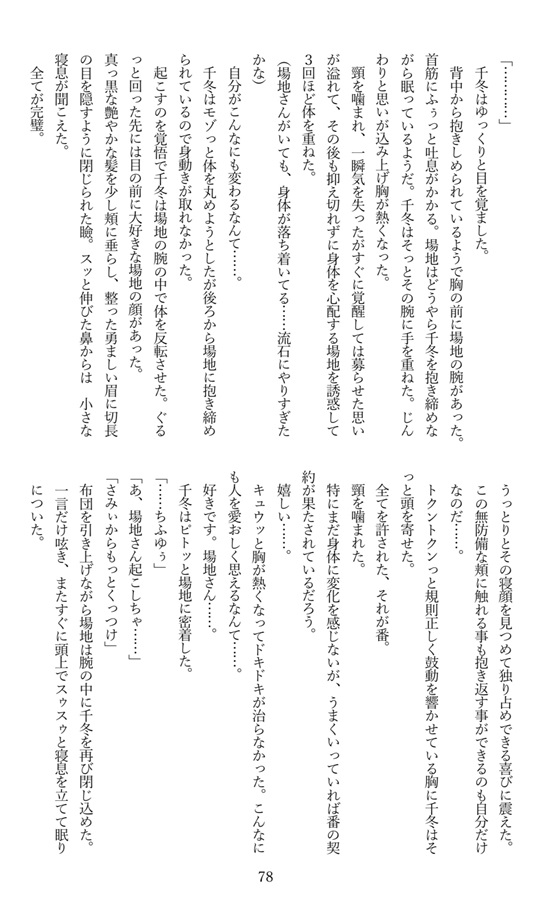 「…………」
　千冬はゆっくりと目を覚ました。
　背中から抱きしめられているようで胸の前に場地の腕があった。
首筋にふぅっと吐息がかかる。場地はどうやら千冬を抱き締めな
がら眠っているようだ。千冬はそっとその腕に手を重ねた。じん
わりと思いが込み上げ胸が熱くなった。
　頸を噛まれ、一瞬気を失ったがすぐに覚醒しては募らせた思い
が溢れて、その後も抑え切れずに身体を心配する場地を誘惑して
３回ほど体を重ねた。
（場地さんがいても、身体が落ち着いてる……流石にやりすぎた
かな）
　自分がこんなにも変わるなんて……。
　千冬はモゾっと体を丸めようとしたが後ろから場地に抱き締め
られているので身動きが取れなかった。
　起こすのを覚悟で千冬は場地の腕の中で体を反転させた。ぐる
っと回った先には目の前に大好きな場地の顔があった。
真っ黒な艶やかな髪を少し頬に垂らし、整った勇ましい眉に切長
の目を隠すように閉じられた瞼。スッと伸びた鼻からは　小さな
寝息が聞こえた。
　全てが完璧。
　うっとりとその寝顔を見つめて独り占めできる喜びに震えた。
　この無防備な頬に触れる事も抱き返す事ができるのも自分だけ
なのだ……。
　トクントクンっと規則正しく鼓動を響かせている胸に千冬はそ
っと頭を寄せた。
　全てを許された、それが番。
　頸を噛まれた。
　特にまだ身体に変化を感じないが、うまくいっていれば番の契
約が果たされているだろう。
　嬉しい……。
　キュウッと胸が熱くなってドキドキが治らなかった。こんなに
も人を愛おしく思えるなんて……。
　好きです。場地さん……。
　千冬はピトッと場地に密着した。
「……ちふゆぅ」
「あ、場地さん起こしちゃ……」
「さみぃからもっとくっつけ」
　布団を引き上げながら場地は腕の中に千冬を再び閉じ込めた。
　一言だけ呟き、またすぐに頭上でスゥスゥと寝息を立てて眠り
についた。
78